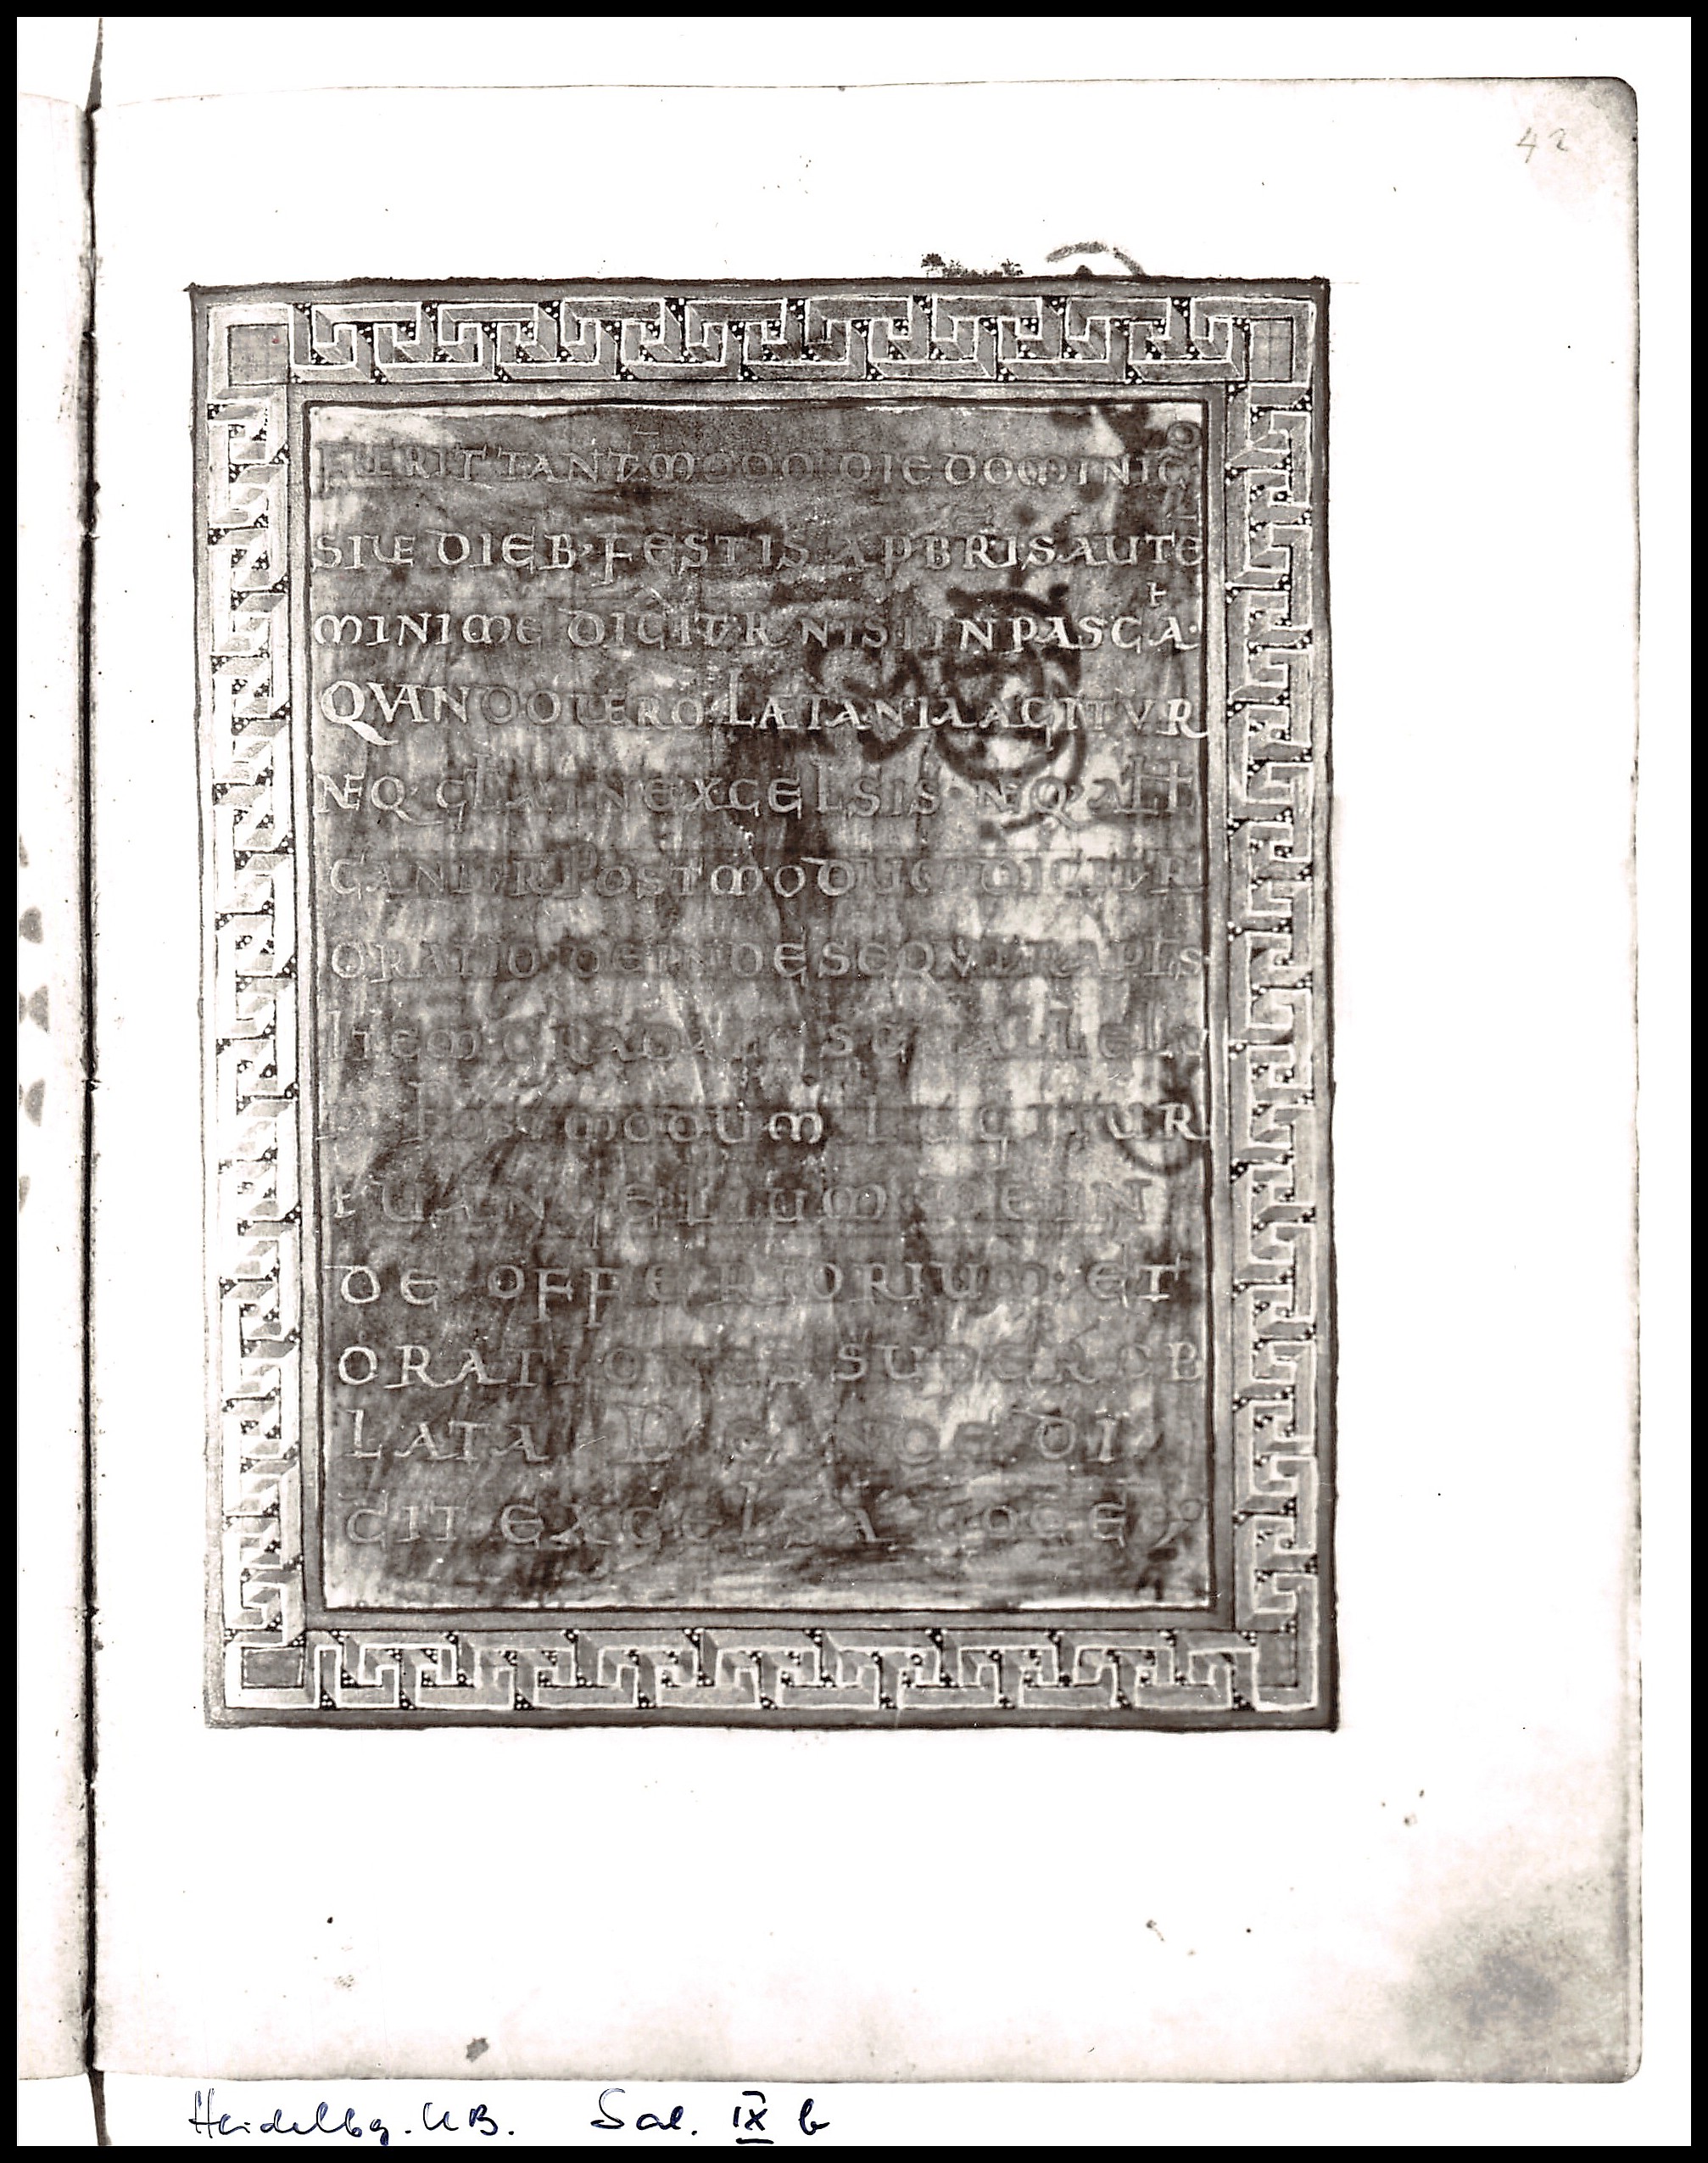 42
FUERIT TANTV̄MODO DIE DOMINICO
SIUE DIEB; FESTIS A PBRIS AUTĒ
MINIME DICITUR NISI IN PASCA·
QUANDO UERO LAETANIA AGITUR
NEQ· GLA IN EXCELSIS NEQ· ALL
CANITUR POSTMODŪ DICITUR
ORATIO DEINDE SEQUITUR APLS
ITEM GRADALE SEU ALLELUIA
POSTMODUM LEGITUR
EUANGELIUM DEIN
DE OFFERTORIUM· ET
ORATIONES SUPER OB
LATA DEINDE DI
CIT EXCELSA UOCE
Heidelbg. UB. Sal. IX b